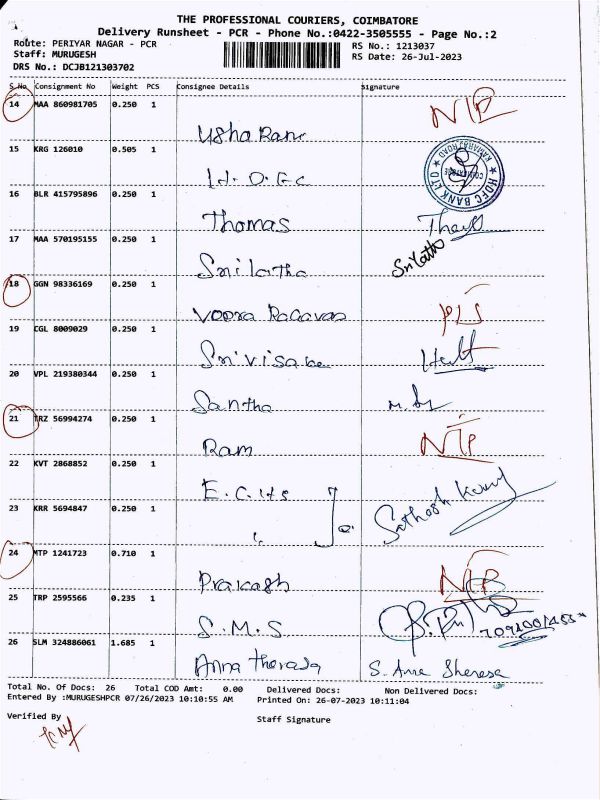 THE PROFESSIONAL COURIERS, COIMBATORE
Delivery Runsheet - PCR - Phone No.:0422-3505555 - Page No.:2
Route: PERIYAR NAGAR - PCR RS No.: 1213037
Staff: MURUGESH RS Date: 26-Jul-2023
DRS No.: DCJB121303702
S.No. Consignment No Weight PCS Consignee Details Signature
14 MAA 860981705 0.250 1 NIP
Usha Rani
15 KRG 126010 0.505 1 HDFC BANK LTD KAMARAJ ROAD
H.D.F.C
16 BLR 415795896 0.250 1
Thomas
17 MAA 570195155 0.250 1 Srilatha
Srilatha
18 GGN 98336169 0.250 1
Voora Ragavan
19 CGL 8009029 0.250 1
Srivisaka
20 VPL 219380344 0.250 1
Santha
21 TRZ 56994274 0.250 1 NIP
Ram
22 KVT 2868852 0.250 1
E.C.Hs
23 KRR 5694847 0.250 1 Sathosh Kumar
24 MTP 1241723 0.710 1 NIP
Prakash
25 TRP 2595566 0.235 1
S.M.S
26 SLM 324886061 1.685 1
Anna Therasa S. Anne Sheresa
Total No. Of Docs: 26 Total COD Amt: 0.00 Delivered Docs: Non Delivered Docs:
Entered By :MURUGESHPCR 07/26/2023 10:10:55 AM Printed On: 26-07-2023 10:11:04
Verified By Staff Signature